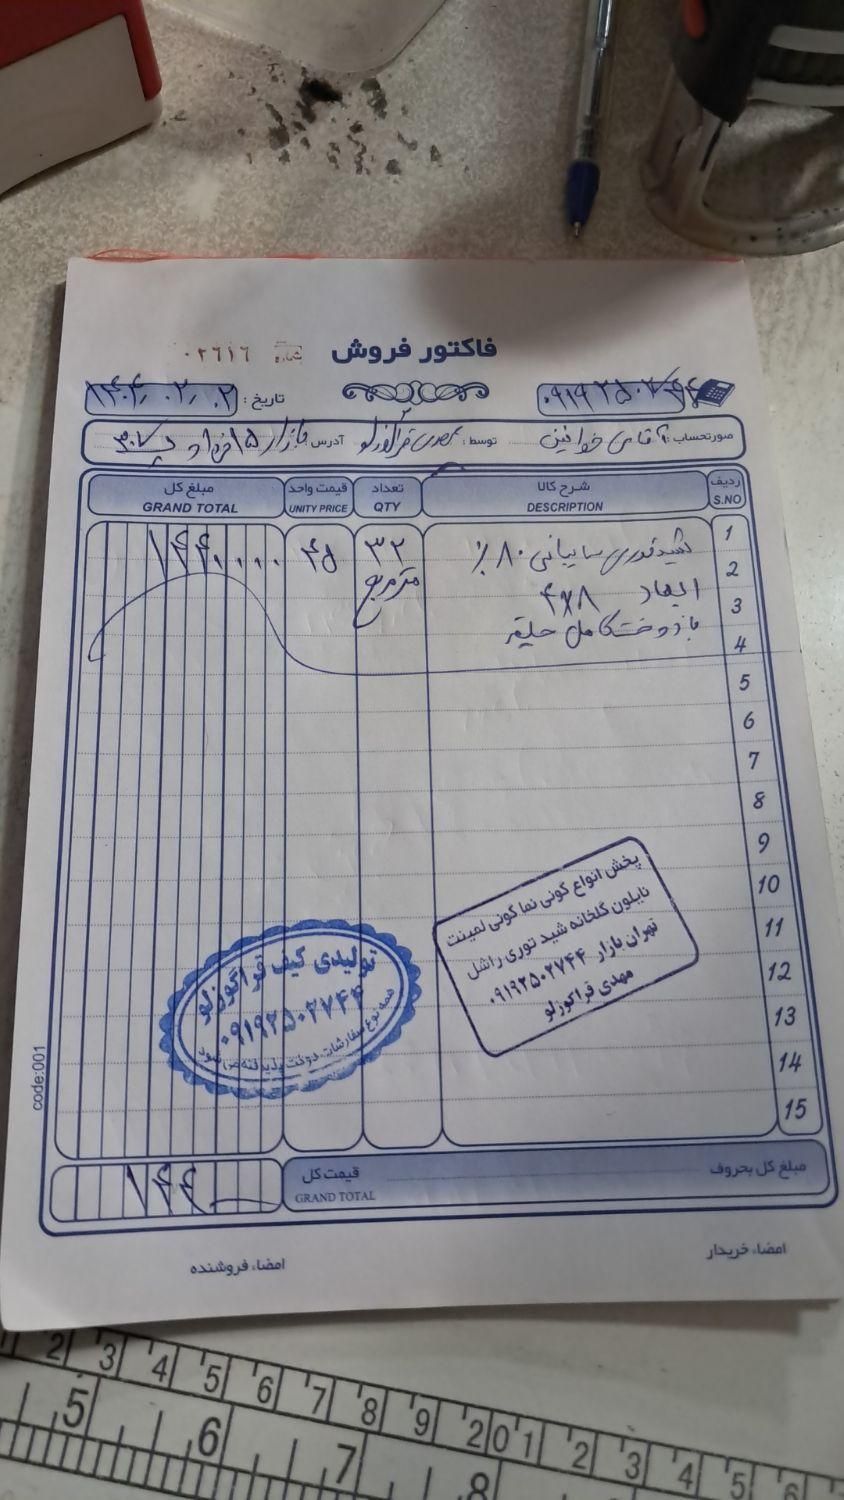 فاکتور فروش
شماره ۰۲۶۱۶
۰۹۱۹۲۵۰۲۷۴۴
تاریخ: ۱۴۰۴٫۰۲٫۰۲
صورتحساب: آقای خوانین توسط: مهدی قراگوزلو آدرس: بازار ۱۵ خرداد
ردیف شرح کالا تعداد قیمت واحد مبلغ کل
S.NO DESCRIPTION QTY UNITY PRICE GRAND TOTAL
1 شیدتوری سایبانی ۸۰٪ ۳۲ ۴۵ ۱۴۴۰۰۰۰
2 ابعاد ۴×۸ مترمربع
3 با دوخت کامل حلقه
4
5
6
7
8
9
10
11
12
13
14
15
پخش انواع گونی نما گونی لمینت
نایلون گلخانه شید توری راشل
تهران بازار ۰۹۱۹۲۵۰۲۷۴۴
مهدی قراگوزلو
تولیدی کیف قراگوزلو
۰۹۱۹۲۵۰۲۷۴۴
همه نوع سفارشات دوخت پذیرفته می شود
code:001
مبلغ کل بحروف قیمت کل ۱۴۴
GRAND TOTAL
امضاء خریدار
امضاء فروشنده
2 3 4 5 6 7 8 9 20 1 2 3 4 5 6
5 6 7 8